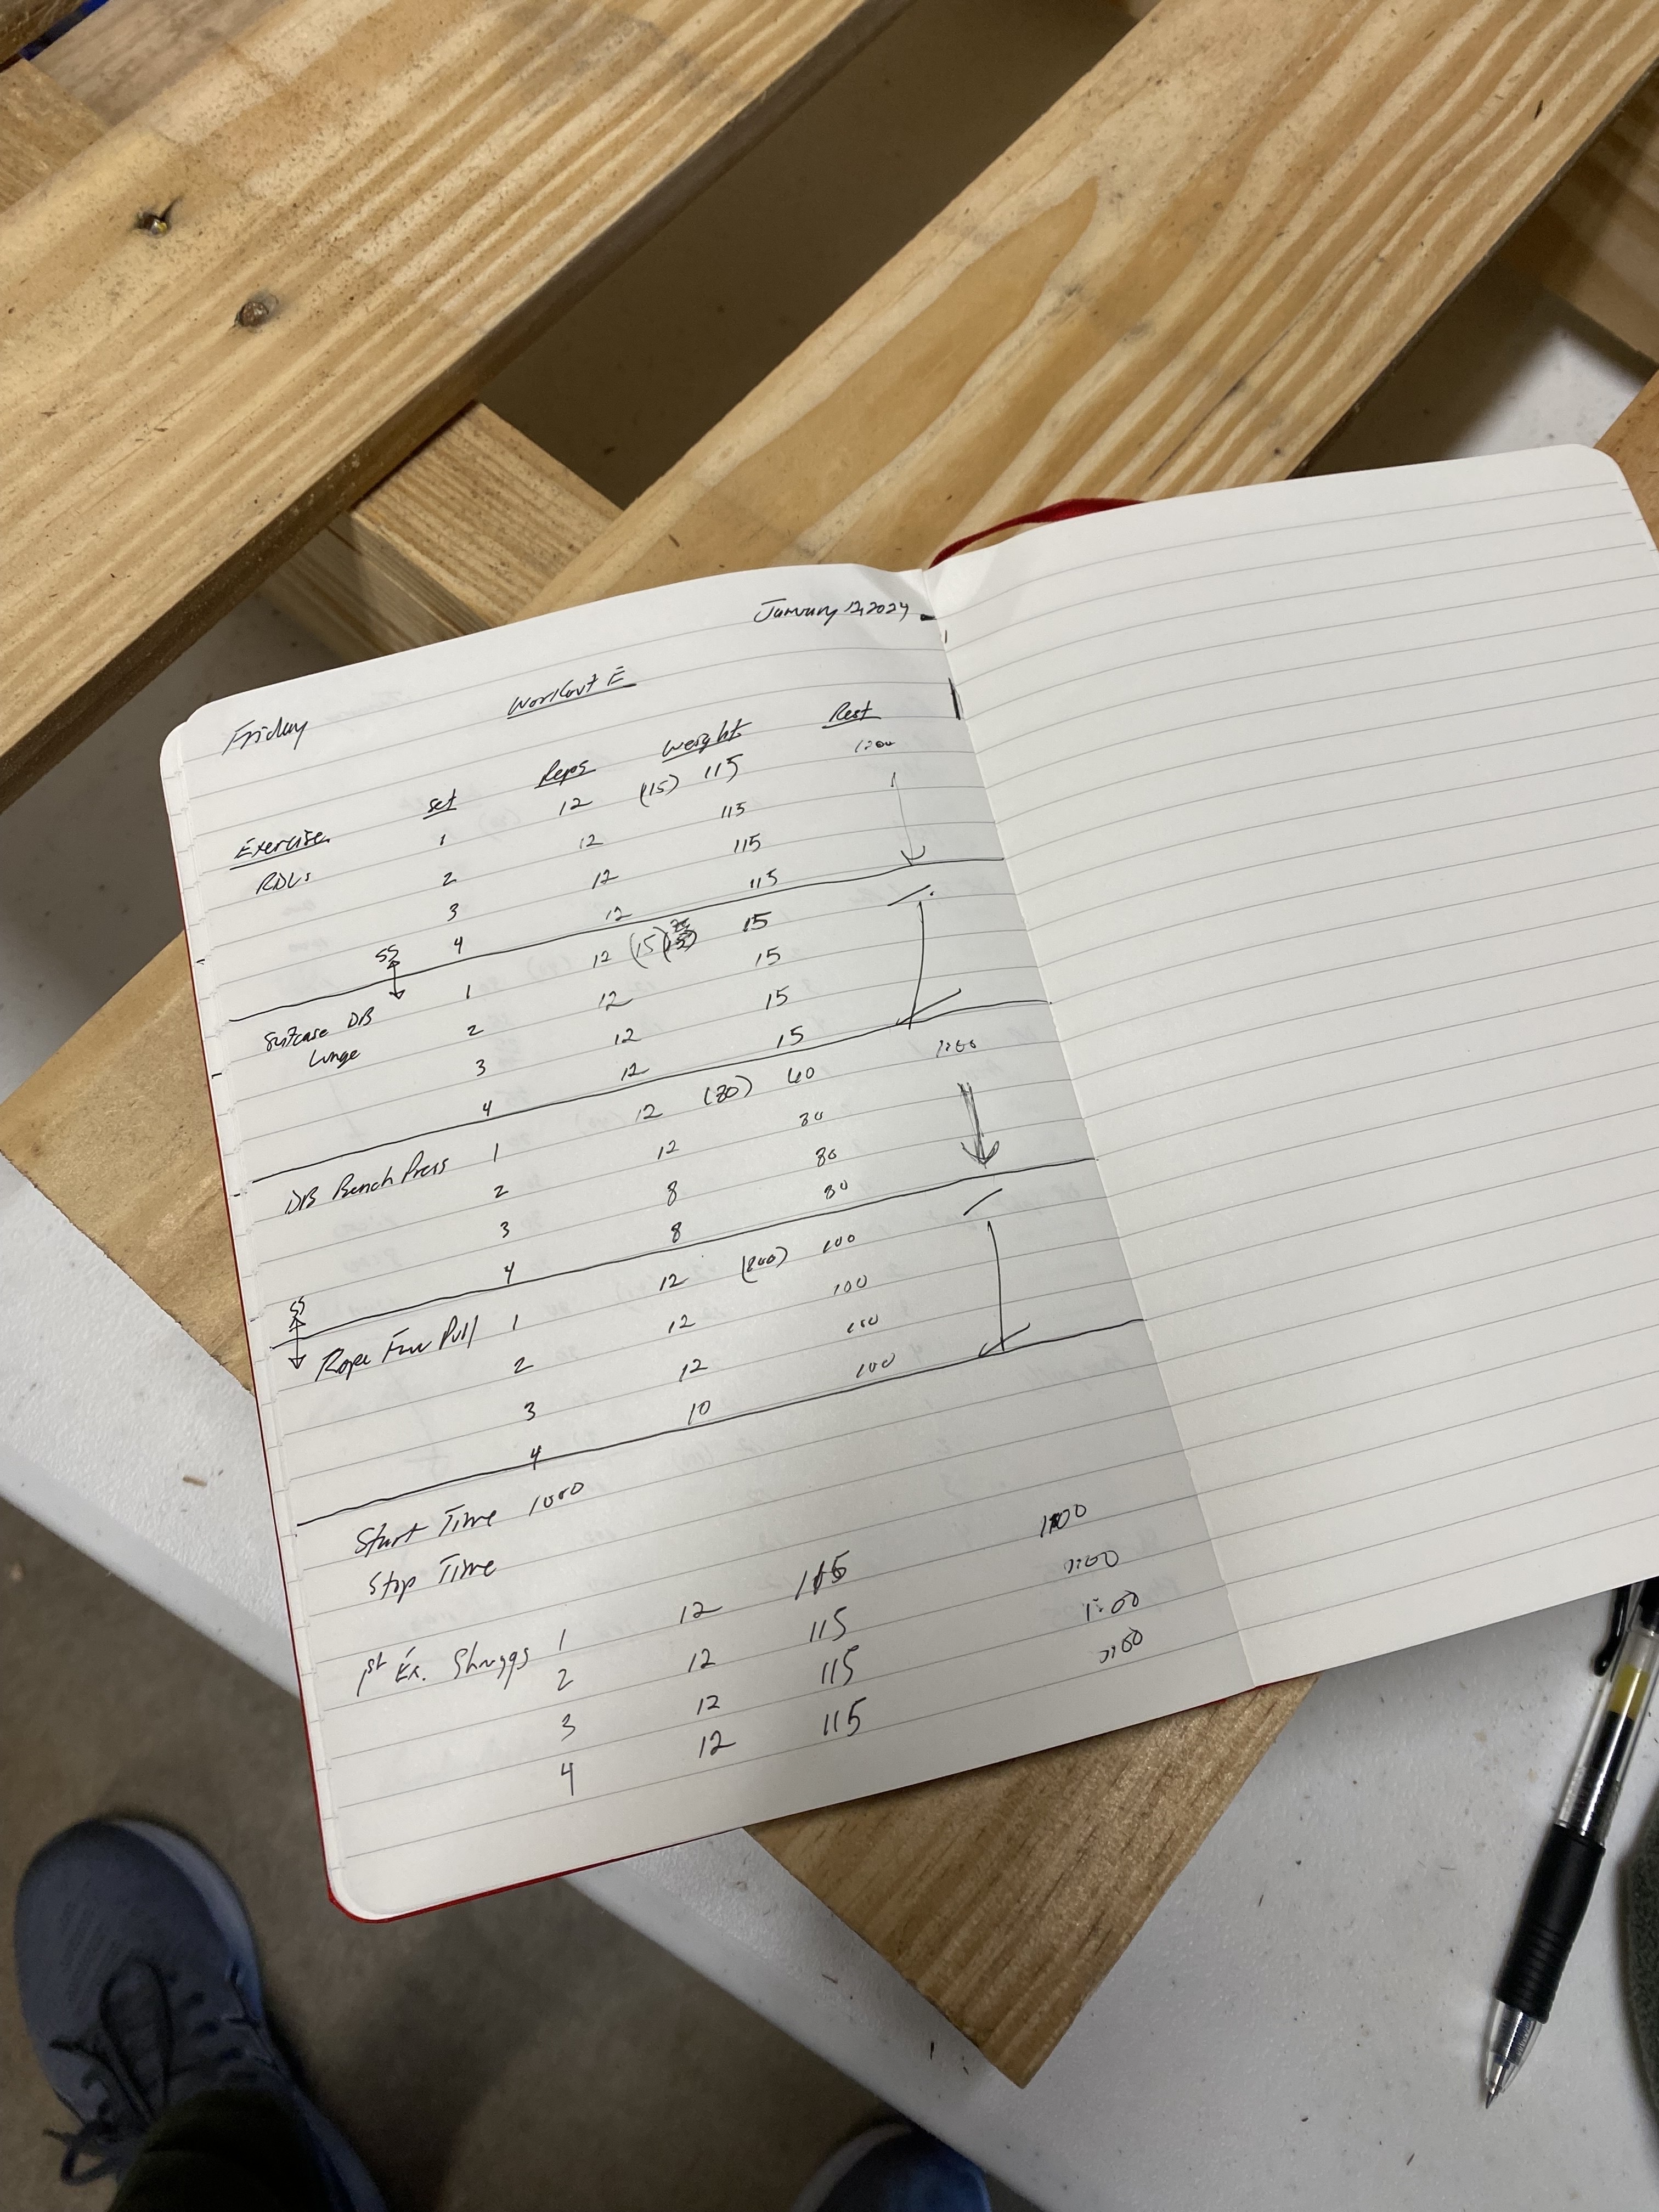 January 12, 2024
Friday Workout E
Exercise set Reps Weight Rest
RDLs 1 12 (115) 115 1:00
2 12 115
3 12 115
4 12 115
SS
Suitcase DB Lunge 1 12 (15) 15
2 12 15
3 12 15
4 12 15
DB Bench Press 1 12 (80) 60 1:00
2 12 80
3 8 80
4 8 80
SS
Rope Face Pull 1 12 100
2 12 100
3 12 100
4 10 100
Start Time 1000
Stop Time
1st Ex. Shruggs 1 12 115 1:00
2 12 115 1:00
3 12 115 1:00
4 12 115 1:00